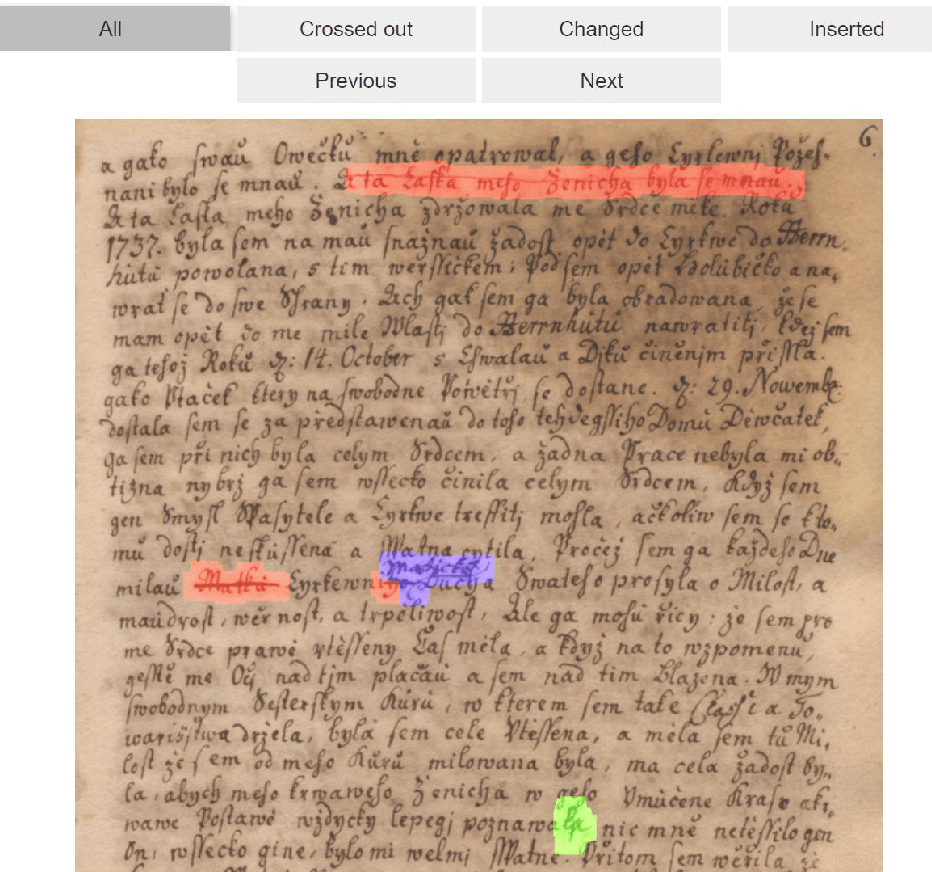 All
Crossed out
Changed
Inserted
Previous
Next
6.
a gako swau Owečku mně opatrowal, a geho Cyrkewnj Požeh-
nani bylo se mnau. A ta Laska meho Ženicha byla se mnau.
A ta Laska meho Ženicha zdržowala me Srdce mile. Roku
1737. byla sem na mau snažnau žadost opět do Cyrkwe do Herrn-
hutu powolana, s tim werssičkem: Pod sem opět Holubičko a na-
wrat se do swe Shrany. Ach gak sem ga byla obradowana, že se
mam opět do me mile Wlasti do Herrnhutu nawratiti, kdež sem
ga tehož Roku d: 14. October s Chwalau a Djků činěnjm přissla.
gako Ptaček ktery na swobodne Powětřj se dostane. d: 29. Nowemb:
dostala sem se za předstawenau do toho tehdegssiho Domu Děwčatek,
ga sem při nich byla celym Srdcem, a žadna Prace nebyla mi ob-
tižna nybrž ga sem wssecko činila celym Srdcem, Když sem
gen Smysl Spasytele a Cyrkwe treffiti mohla, ačkoliw sem se k to-
mu dosti neskussena a Matna cytila. Pročež sem ga každeho Dne
milau Matku Cyrkewni Ducha Swateho prosyla o Milost, a
maudrost, wěrnost, a trpěliwost, Ale ga mohu řicy: že sem pro
me Srdce prawě vtěsseny Čas měla, a když na to wzpomenu,
gestě me Oči nad tjm plačau a sem nad tim Blazena. W mym
swobodnym Sesterskym Kuru, w kterem sem take a To-
warišstwa držela, byla sem cele Vtěssena, a měla sem tu Mi-
lost že sem od meho Kuru milowana byla, ma cela žadost by-
la, abych meho krwaweho Ženicha w geho Vmučene Krase a k-
wawe Postawě wždycky lepegj poznawala nic mně netěssilo gen
On; wssecko gine, bylo mi welmj Matne. Přitom sem wěřila, že